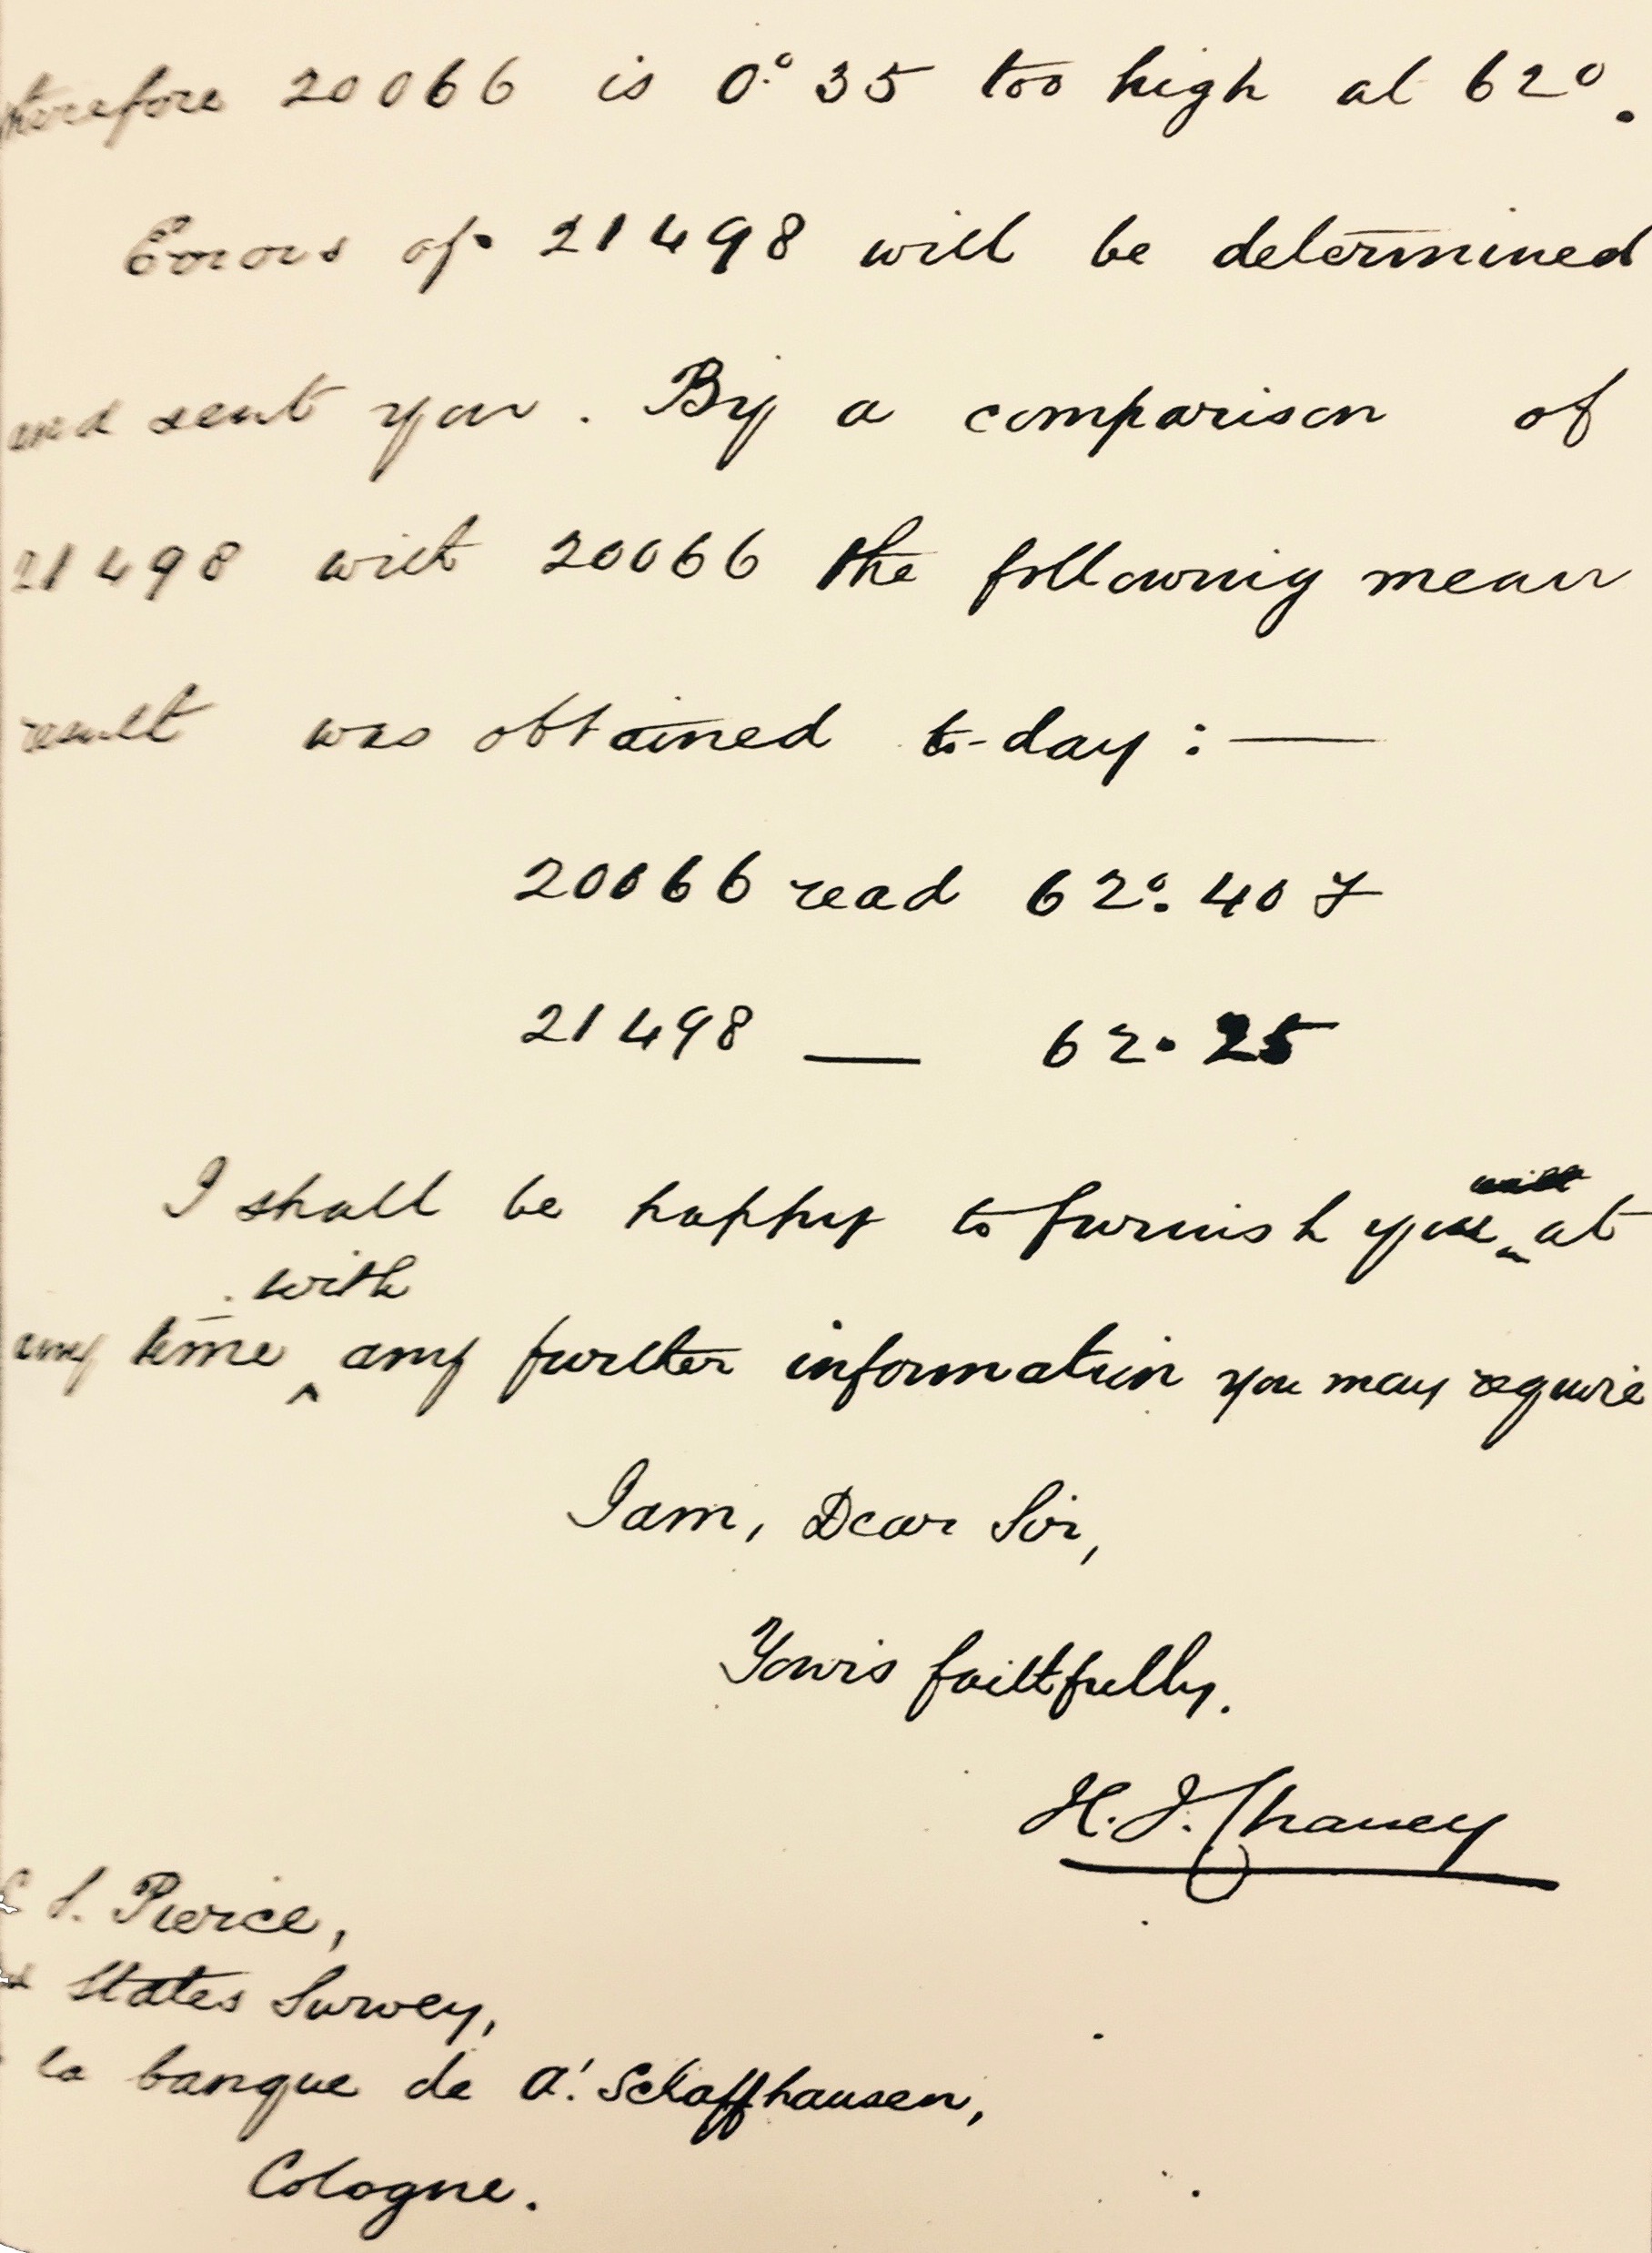 therefore 20066 is 0.°35 too high at 62°.
Errors of 21498 will be determined
and sent you. By a comparison of
21498 with 20066 the following mean
result was obtained to-day :—
20066 read 62°.407
21498 — 62.25
I shall be happy to furnish you at
with
any time ^ any further information you may require
I am, Dear Sir,
Yours faithfully.
H. J. Chaney
S. Pierce,
States Survey,
la banque de A. Schaffhausen,
Cologne.